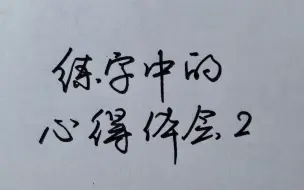 练字中的
心得体会2